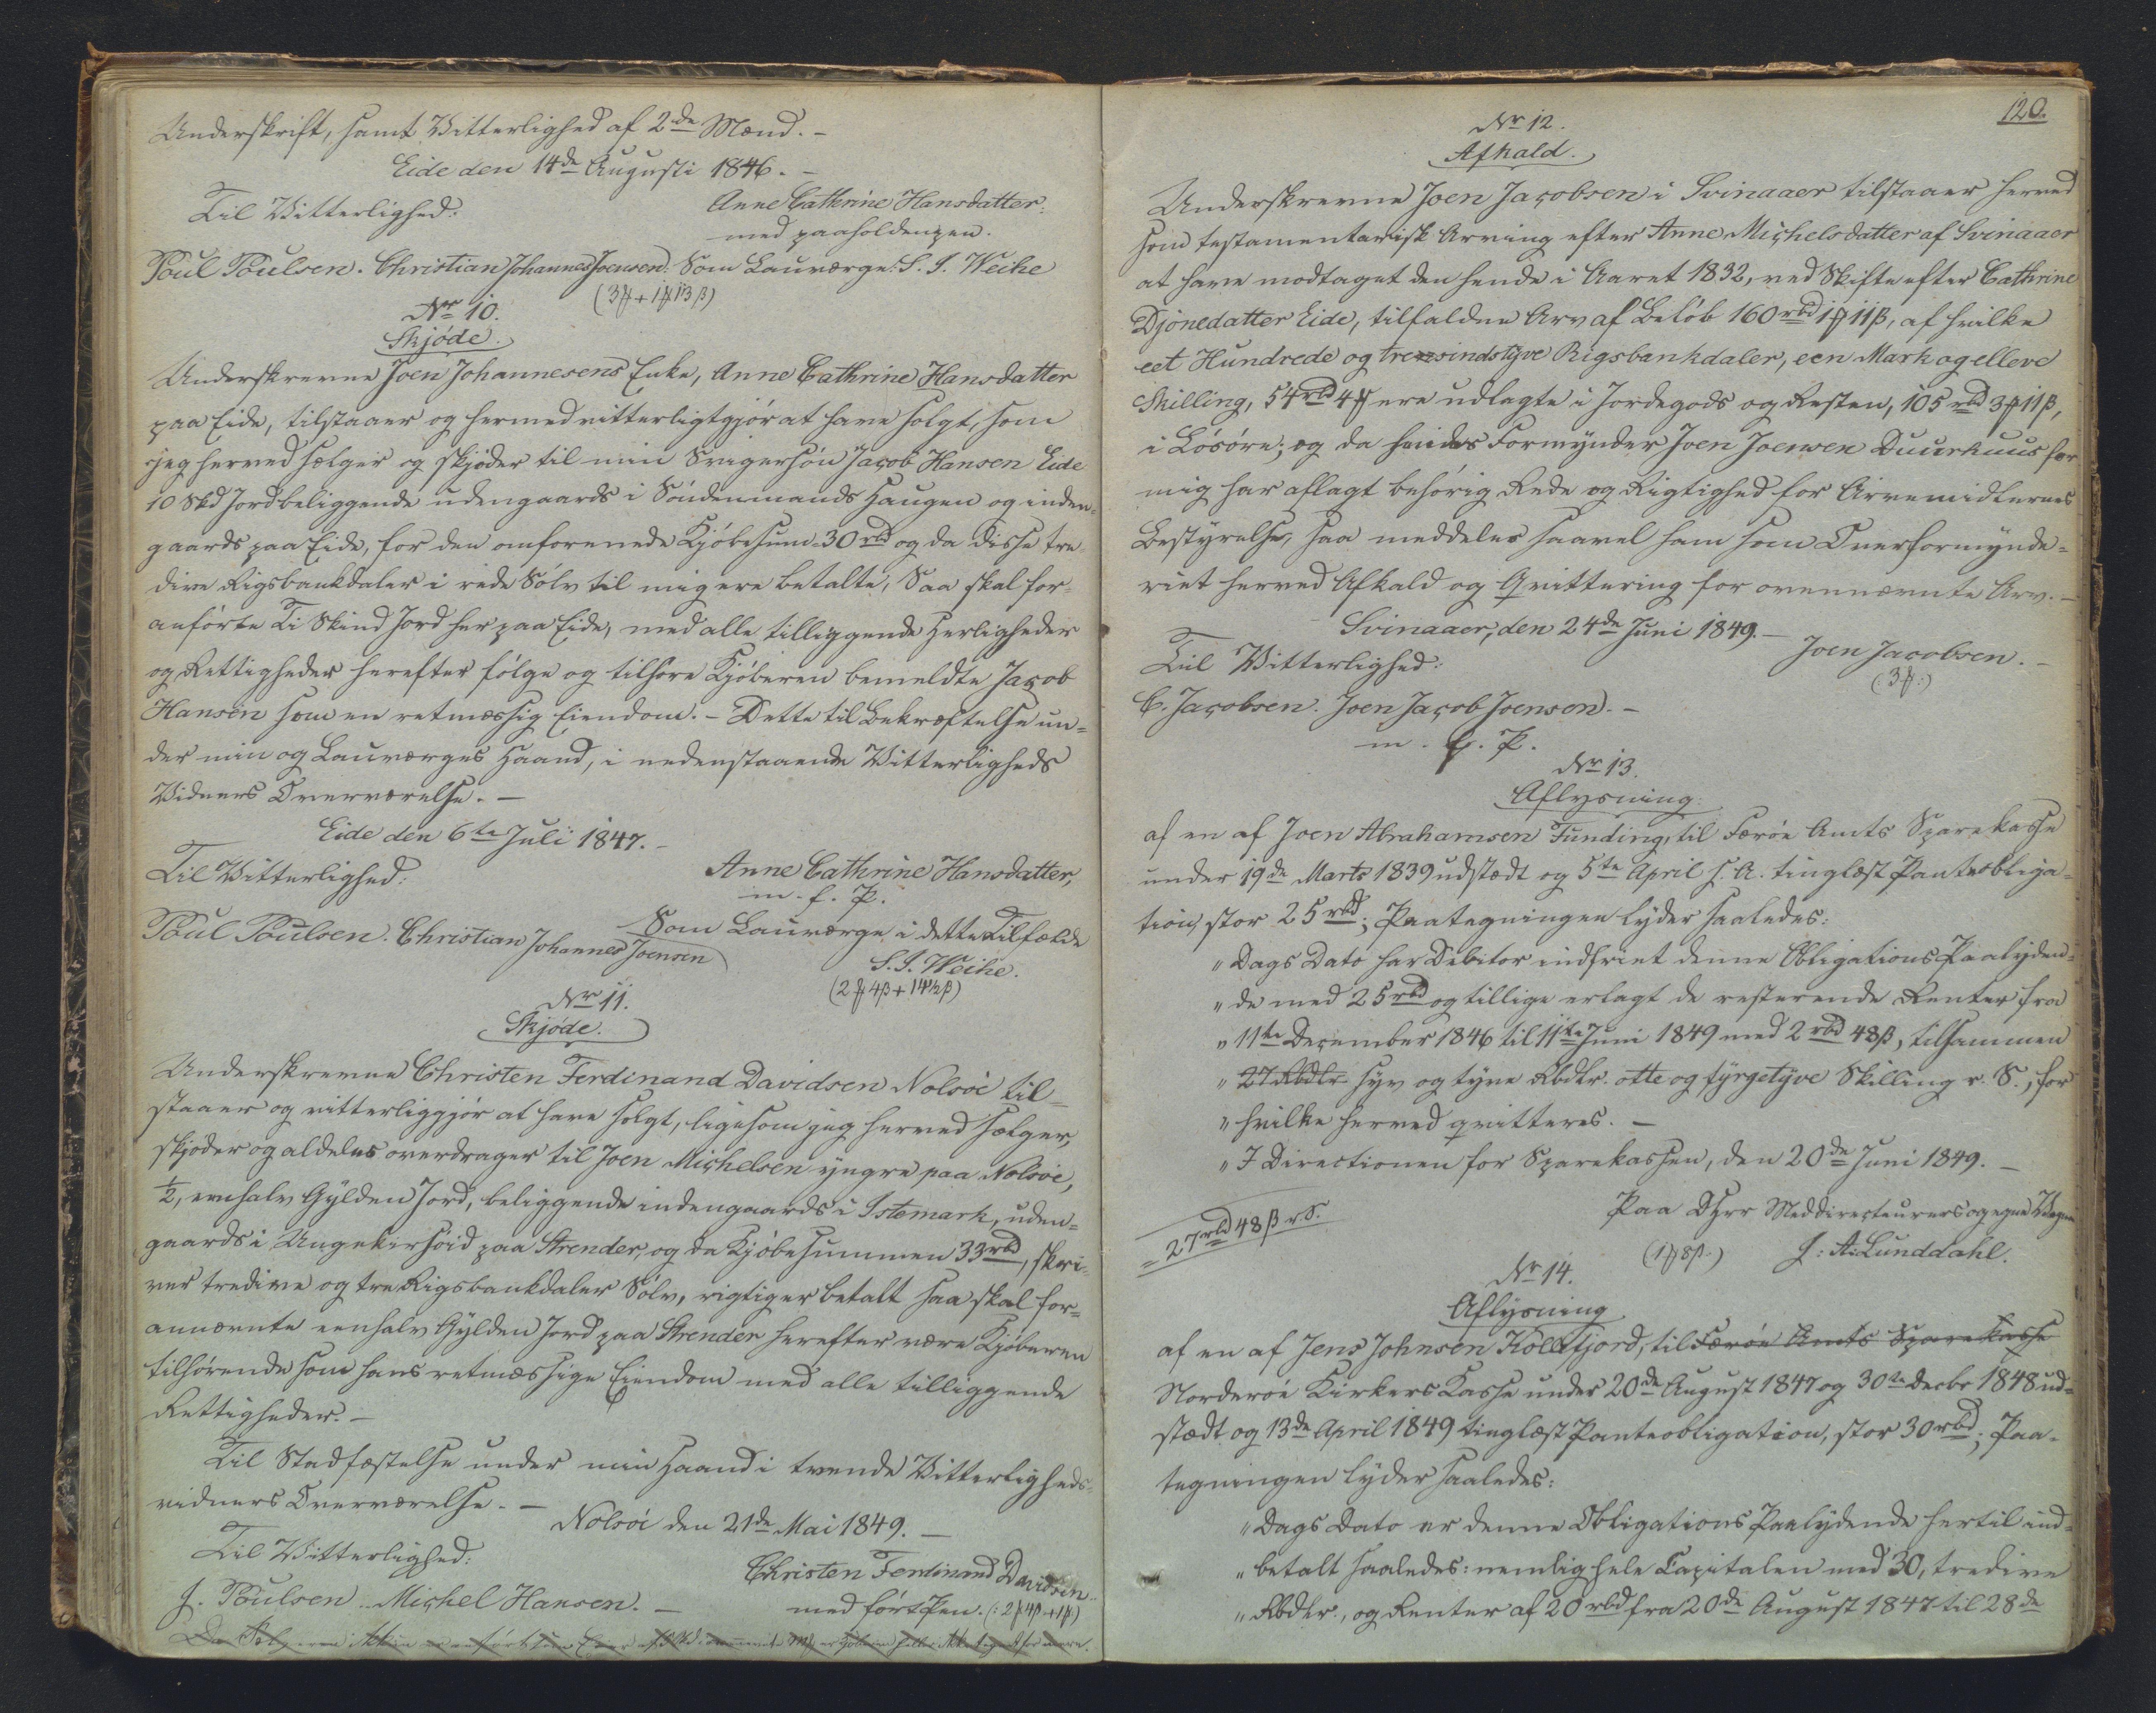 Underskrift, samt Vitterlighed af 2de Mænd. –
Eide den 14de Augusti 1846. –
Til Vitterlighed:
Anne Cathrine Hansdatter:
med paaholden pen.
Poul Poulsen. Christian Johannes Joensen. Som Laugværge: S. J. Weihe
(3 ℳ + 1 ℳ 13 β)
Nr 10.
Skjöde.
Underskrevne Joen Johannesens Enke, Anne Cathrine Hansdatter
paa Eide, tilstaaer og hermed vitterligtgjör at have solgt, som
jeg herved sælger og skjöder til min Svigersön Jacob Hansen Eide
10 Skd Jord beliggende udengaards i Söndenmands Haugen og inden-
gaards paa Eide, for den omforenede Kjöbesum 30 rbd og da disse tre-
dive Rigsbankdaler i rede Sölv til mig ere betalte, Saa skal for-
anförte Ti Skind Jord her paa Eide, med alle tilliggende Herligheder
og Rettigheder herefter fölge og tilhöre Kjöberen bemeldte Jacob
Hansen som en retmæssig Eiendom. – Dette til Bekræftelse un-
der min og Laugværges Haand, i nedenstaaende Vitterligheds
Vidners Overværelse. –
Eide den 6te Juli 1847. –
Til Vitterlighed:
Anne Cathrine Hansdatter,
m. f. P.
Poul Poulsen. Christian Johannes Joensen
Som Laugværge i dette Tilfælde
S. J. Weihe.
(2 ℳ 4 β + 14½ β)
Nr 11.
Skjöde.
Underskrevne Christen Ferdinand Davidsen Nolsöe til-
staaer og vitterliggjör at have solgt, ligesom jeg herved sælger,
skjöder og aldeles overdrager til Joen Michelsen yngre paa Nolsöe,
½, een halv Gylden Jord, beliggende indengaards i Istemark, uden-
gaards i Ungekirhoid paa Strender, og da Kjöbesummen 33 rbd, skri-
ver tredive og tre Rigsbankdaler Sölv, rigtig er betalt saa skal for-
annævnte een halv Gylden Jord paa Strender herefter være Kjöberen
tilhörende som hans retmæssige Eiendom med alle tilliggende
Rettigheder. –
Til Stadfæstelse under min Haand i tvende Vitterligheds-
vidners Overværelse. –
Nolsöi den 21de Mai 1849. –
Til Vitterlighed:
Christen Ferdinand Davidsen
J. Poulsen. Michel Hansen. –
med fört Pen. (: 2 ℳ 4 β + 1 ℳ)
120.
Nr 12.
Afkald.
Underskrevne Joen Jacobsen i Svinaaer tilstaaer herved
som testamentarisk Arving efter Anne Michelsdatter af Svinaaer
at have modtaget den hende i Aaret 1832, ved Skifte efter Cathrine
Djonedatter Eide, tilfaldne Arv af Belöb 160 rbd 1 ℳ 11 β, af hvilke
eet Hundrede og tresindstyve Rigsbankdaler, een Mark og elleve
Skilling, 54 rbd 4 ℳ ere udlagte i Jordegods og Resten, 105 rbd 3 ℳ 11 β,
i Lösöre; og da hendes Formynder Joen Joensen Duurhuus for
mig har aflagt behörig Rede og Rigtighed for Arvemidlernes
Bestyrelse, saa meddeles saavel ham som Overformynde-
riet herved Afkald og Qvittering for ovennævnte Arv. –
Svinaaer, den 24de Juni 1849. –
Til Vitterlighed:
Joen Jacobsen. –
(: 3 ℳ :)
C. Jacobsen. Joen Jacob Joensen. –
m. f. P.
Nr 13.
Aflysning.
af en af Joen Abrahamsen Funding, til Færöe Amts Sparekasse
under 19de Marts 1839 udstædt og 5te April s. A. tinglæst Panteobliga-
tion, stor 25 rbd; Paategningen lyder saaledes:
" Dags Dato har Debitor indfriet denne Obligations Paalyden-
" de med 25 rbd og tillige erlagt de resterende Renter fra
" 11te December 1846 til 11te Juni 1849 med 2 rbd 48 β, tilsammen
" 27 Rbdlr. syv og tyve Rbdlr. otte og fyrgetyve Skilling r. S., for
" hvilke herved qvitteres. –
" I Directionen for Sparekassen, den 20de Juni 1849. –
Paa DHrr Meddirecteurers og egne Vegne
= 27 rbd 48 β r. S.
(1 ℳ 8 β.) J: A: Lunddahl.
Nr 14.
Aflysning
af en af Jens Johnsen Kollefjord, til Færöe Amts Sparekasse
Norderöe Kirkers Kasse under 20de August 1847 og 30te Decbr 1848 ud-
stædt og 13de April 1849 tinglæst Panteobligation, stor 30 rbd; Paa-
tegningen lyder saaledes:
" Dags Dato er denne Obligations Paalydende hertil ind-
" betalt saaledes: nemlig hele Capitalen med 30, tredive
" Rbdlr., og Renter af 20 rbd fra 20de August 1847 til 28de